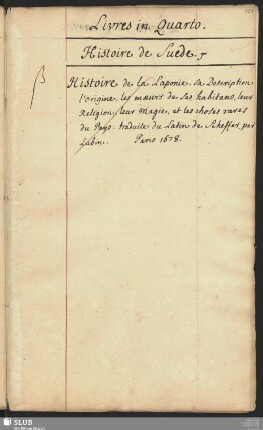 Livres in Quarto.
Histoire de Suede.
Histoire de la Laponie, sa Description
l'origine, les mœurs de ses habitans, leur
Religion, leur Magie, et les choses rares
du Pays: traduite du Latin de Scheffer, par
Lubin. Paris 1678.
SLUB
Wir führen Wissen.